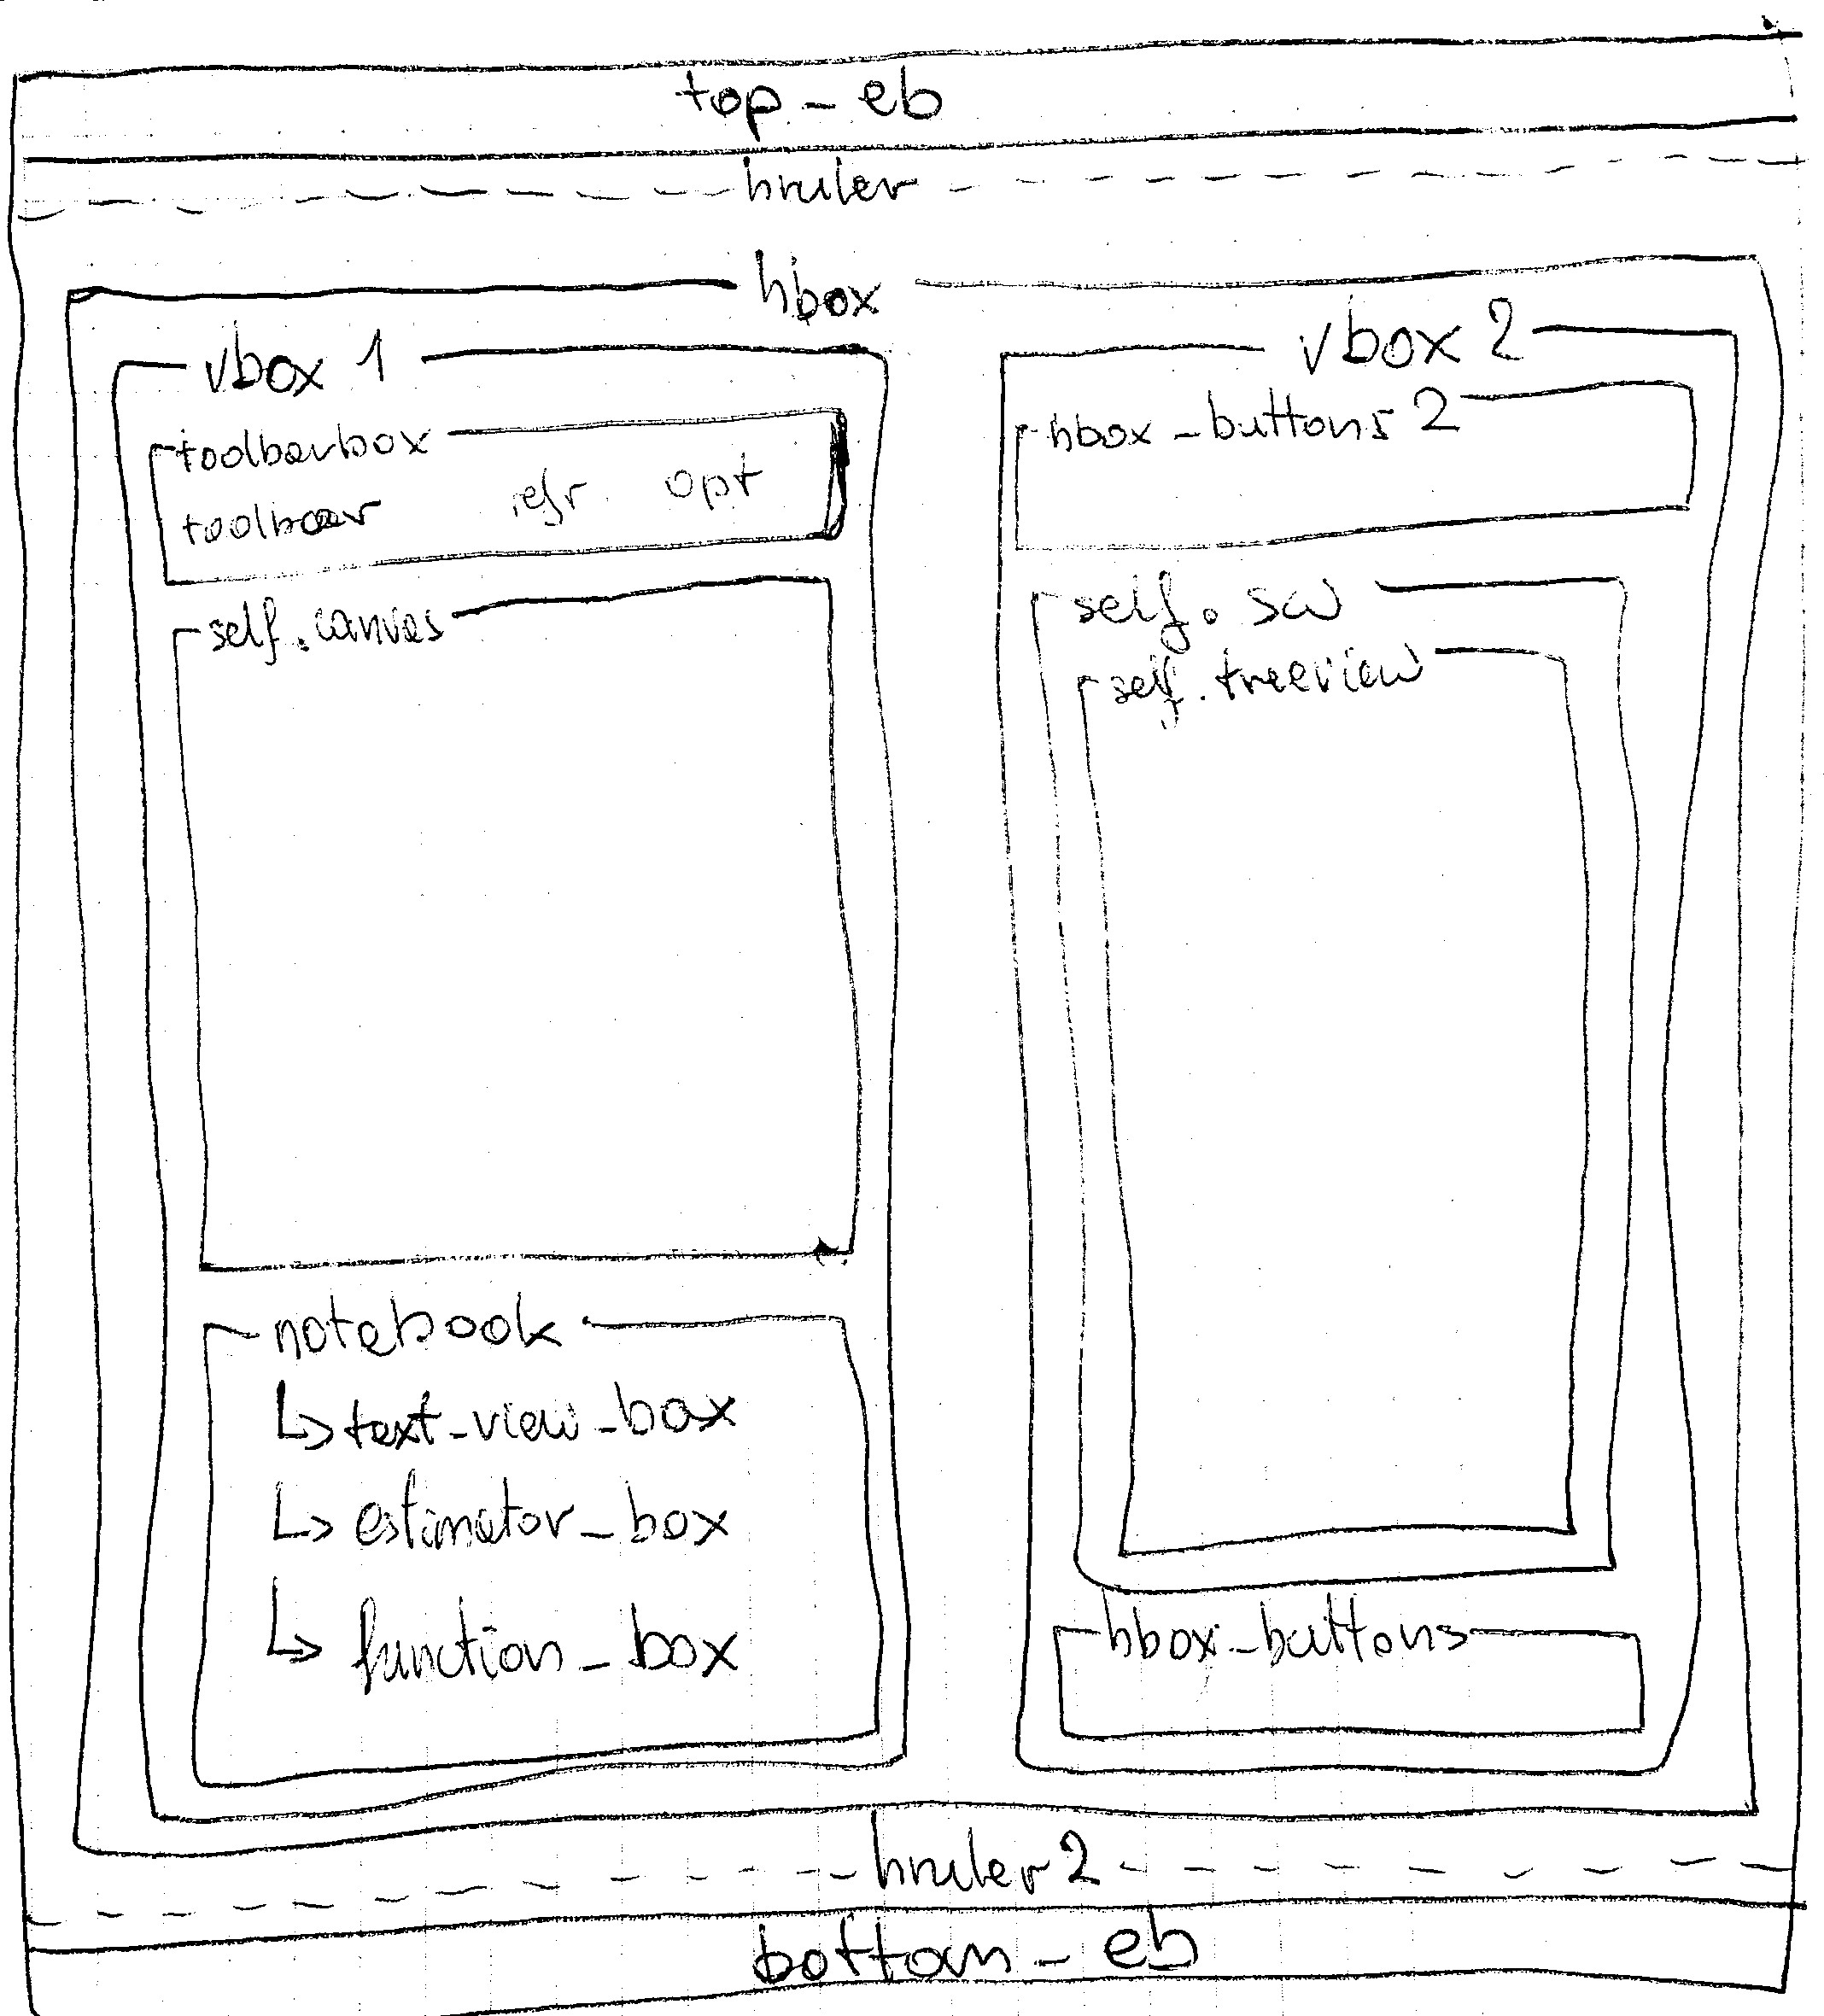 top_eb
hruler
hbox
vbox 1
toolbarbox
toolbar refr. opt
self.canvas
notebook
text_view_box
estimator_box
function_box
vbox 2
hbox_buttons 2
self.sw
self.treeview
hbox_buttons
hruler 2
bottom_eb